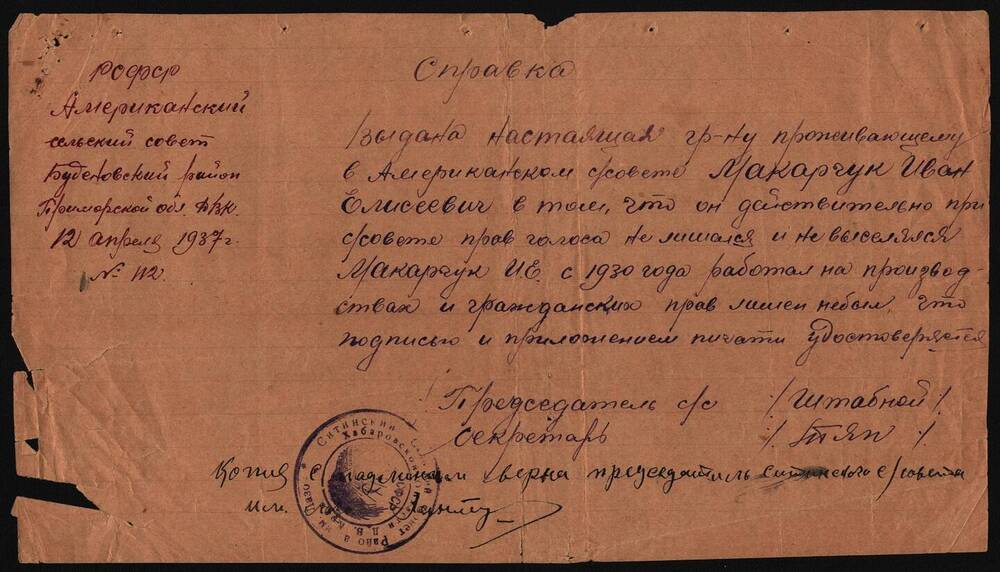 РСФСР
Американский
сельский совет
Буденовский район
Приморской обл. ДВК.
12 апреля 1937г.
№ 112.
Справка
Выдана настоящая гр-ну проживающему
в Американском с/совете Макарчук Иван
Елисеевич в том, что он действительно при
с/совете прав голоса не лишался и не выселялся
Макарчук И.Е. с 1930 года работал на производ-
ствах и гражданских прав лишен небыл, что
подписью и приложением пичати удостоверяется
Председатель с/с /Штабной/
Секретарь /Тяп/
Копия с подлинным верна председатель Ситинского с/совета
Ситинский
Хабаровской